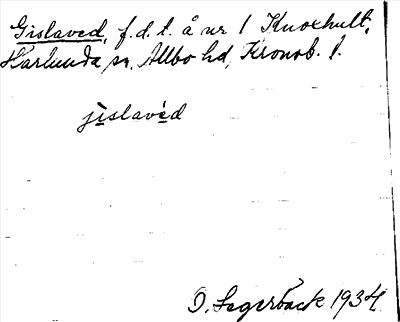 Gislaved, f.d.t. å nr 1 Knoxhult,
Härlunda sn. Allbo hd, Kronob. l.
jìslavéd
O. Segerbäck 1934